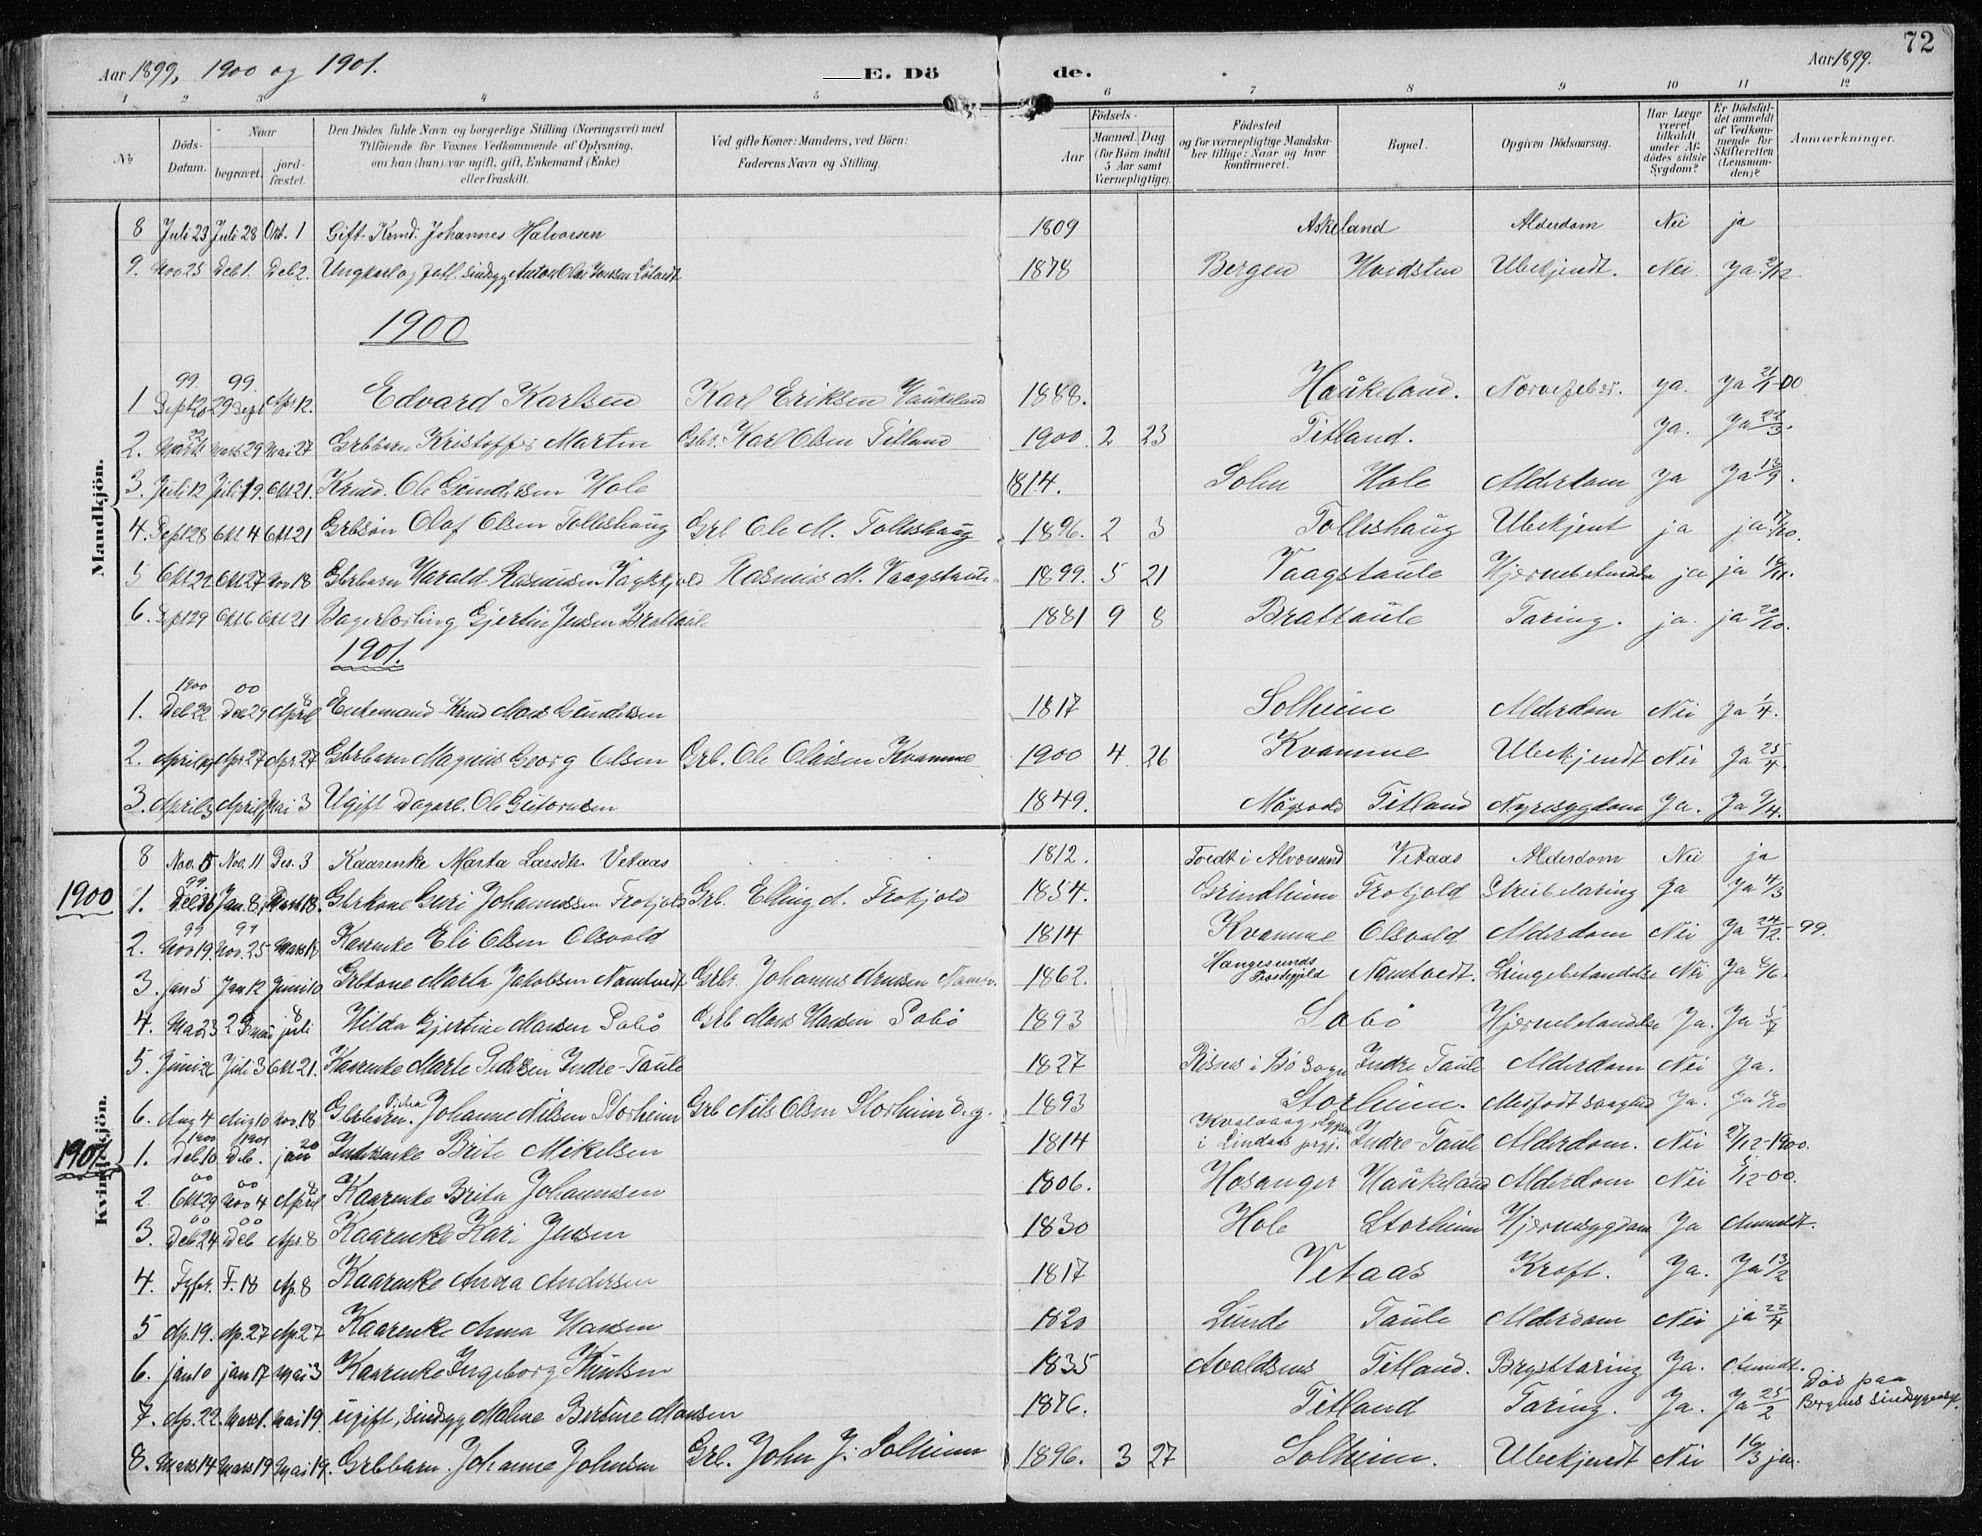 72
Aar 1899, 1900 og 1901. E. Dö de. Aar 1899.
1 2 3 4 5 6 7 8 9 10 11 12
№ Döds-Datum. Naar begravet. jord-fæstet. Den Dödes fulde Navn og borgerlige Stilling (Næringsvei) med Tilföiende for Voxnes Vedkommende af Oplysning, om han (hun) var ugift, gift, Enkemand (Enke) eller fraskilt. Ved gifte Koner: Mandens, ved Börn: Faderens Navn og Stilling. Aar Födsels- Maaned. Dag (for Börn indtil 5 Aar samt Værnepligtige). Födested og for værnepligtige Mandska-ber tillige: Naar og hvor konfirmeret. Bopæl. Opgiven Dödsaarsag. Har Læge været tilkaldt under Af-dödes sidste Sygdom? Er Dödsfal-det anmeldt af Vedkom-mende for Skifteretten (Lensman-den)? Anmærkninger.
Mandkjön.
8 Juli 23 Juli 28 Okt. 1 Gift Kmd. Johannes Halvorsen 1809 Askeland Alderdom Nei ja
9. Nov 25 Deb 1. Deb 2. Ungkarl og sindsyg Anton Olai 1878 Bergen Hvidsten Ubekjendt. Nei Ja 2/12
1900
1 99. Sept 20 99. 29 Sept Apr 12. Edvard Karlsen Karl Eriksen Haukeland 1888. Haukeland. Nervefeber. ja. Ja -00
2. Marts 29 Mai 27 Grbbarn Kristoffer Martin Gbr. Karl Olsen Titland 1900 2 23 Titland. Ja. Ja 22/3.
3. Juli 12 Juli 19. Okt 21. Kmd. Ole Gundersen Hole 1814. Hole Alderdom Ja Ja
4. Sept 28 Okt 4 Okt 21 Grbsøn Olaf Olsen Tolleshaug Grb Ole M. Tolleshaug 1896. 2 3 Tolleshaug Ubekjent ja ja 17/10.
5 Okt 22 Okt 27 Nov 18 Gbrbarn Harald Rasmusen Rasmus M. Vaagstaule 1899. 5 21 Vaagstaule Hjernebetændelse ja ja
6. Sept 29 Okt 6 Okt 21 Bagerlærling Gjertin Jensen Brattaule 1881 9 8 Brattaule Tæring. ja. ja 20/10.
1901.
1. 1900 Deb 22. 00 Deb 29 8 April Enkemand Kmd Mons Gundersen 1817 Solheim Alderdom Nei Ja 1/4.
2. April 19 Apr 27 Apr 27 Gbrbarn Magnus Georg Olsen Grb. Ole Olaisen Kvamme 1900 4 26 Kvamme Ubekjendt Nei Ja 25/4.
3. April 3 April Mai 3 Ugift Dagarb. Ole Gutormsen 1849. Titland Nyresygdom Ja. Ja 9/4.
Kvindkjön.
8 Nov. 5 Nov. 11 Des. 3 Kaarenke Marta Larsdtr. Vetaas 1812. Toedt i Alversund Vetaas Alderdom Nei ja
1900
1. 99 Deb 30 Jan. 8 Mart 18. Gbrkone Guri Johannessen Frotjold Grb. Elling A. Frotjold 1854. Grindheim Frotjold Strubetæring Ja Ja 4/3
2. 99 Nov 19. 99 Nov. 25 Mars 18 Kaarenke Eli Olsen Olsvold 1814 Kvamme Olsvold Alderdom Nei Ja 24/12 - 99.
3. jan 5 Jan 12 Juni 10 Grbkone Marta Jakobsen Namtvedt Grbr. Johannes Arnesen 1862. Haugesunds Namtvedt. Lungebetændelse Nei Ja 6/6.
4. Mai 23 juli 8 Hilda Gjertine Monsen Sabø Grb Mons Hansen Sabø 1893 Sabø Hjernebetændelse Ja. Ja 5/7
5. Juni 26 Juli 3 Okt 21. Kaarenke Marte Pedersen Indre-Taule 1827 Risnes i Bø Sogn Indre Taule Alderdom Nei Ja.
6. Aug 4 Aug 10 Nov. 18 Grbbarn. Johanne Nilsen Storheim Grb Nils Olsen Storheim 1893 Storheim. Medfødt svaghed Ja. Ja
1901.
1. 1900 Deb 10 1901 Deb. 20 jan Brite Mikelsen 1814 i Lindaas prgj. Indre-Taule Alderdom. Nei 27/12-1900.
2. 00 Okt 29 00 Nov 4 8 April Kaarenke Brita Johannessen 1806. Hosanger Haukeland Alderdom Nei 1/12-00.
3. 00 Deb 24 00 Deb Apr. 8 Kaarenke Kari Jensen 1830 Hole Storheim Hjernesygdom Ja Anmeldt.
4. F. 18 Ap. 8 Kaarenke Anna Andersen 1817 Vetaas Kræft. Ja. Ja 13/2
5 Ap. 19. Ap. 27 Ap. 27 Kaarenke Anna Hansen 1820 Lunde Taule Alderdom Nei ja 22/4
6. jan 10 jan 17 Mai 3 Kaarenke Ingeborg Knutsen 1835 Avaldsnes Titland. Brysttæring Ja. Anmdt.
7. Ap. 22 Mars 1. Mai 19. ugift, sindsyg Malene Bertine Monsen 1876. Titland Tæring. Ja. Ja 25/2 Død paa Bergens sindsygeasyl.
8. Mars 14 Mars 19 Mai 19. Grbbarn. Johanne Johnsen Grb. John J. Solheim 1896. 3 27 Solheim. Ubekjendt Nei 16/3 ja.